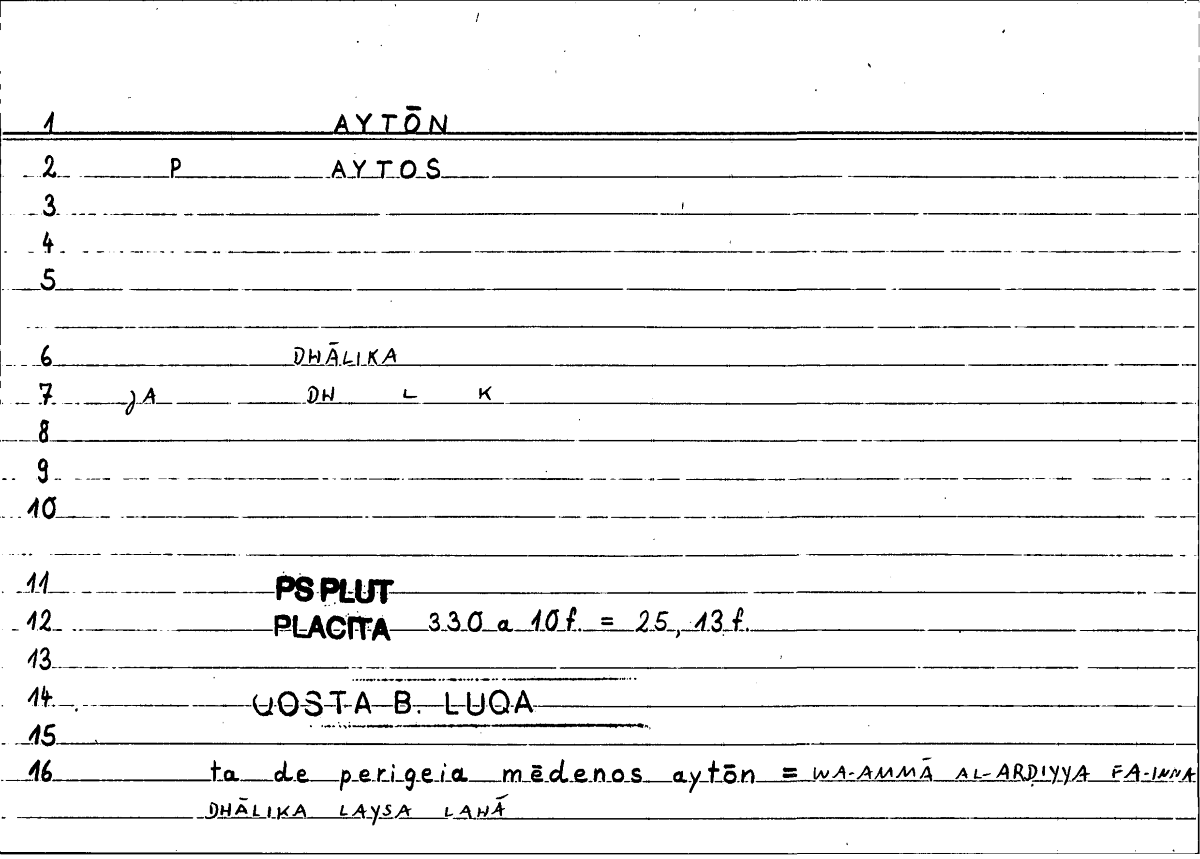 1 AYTŌN
2 P AYTOS
3
4
5
6 DHĀLIKA
7 jA DH L K
8
9
10
11 PS PLUT
12 PLACITA 330 a 10f. = 25, 13f.
13
14 QOSTA B. LUQA
15
16 ta de perigeia mēdenos aytōn = WA-AMMĀ AL-ARḌIYYA FA-INNA
DHĀLIKA LAYSA LAHĀ